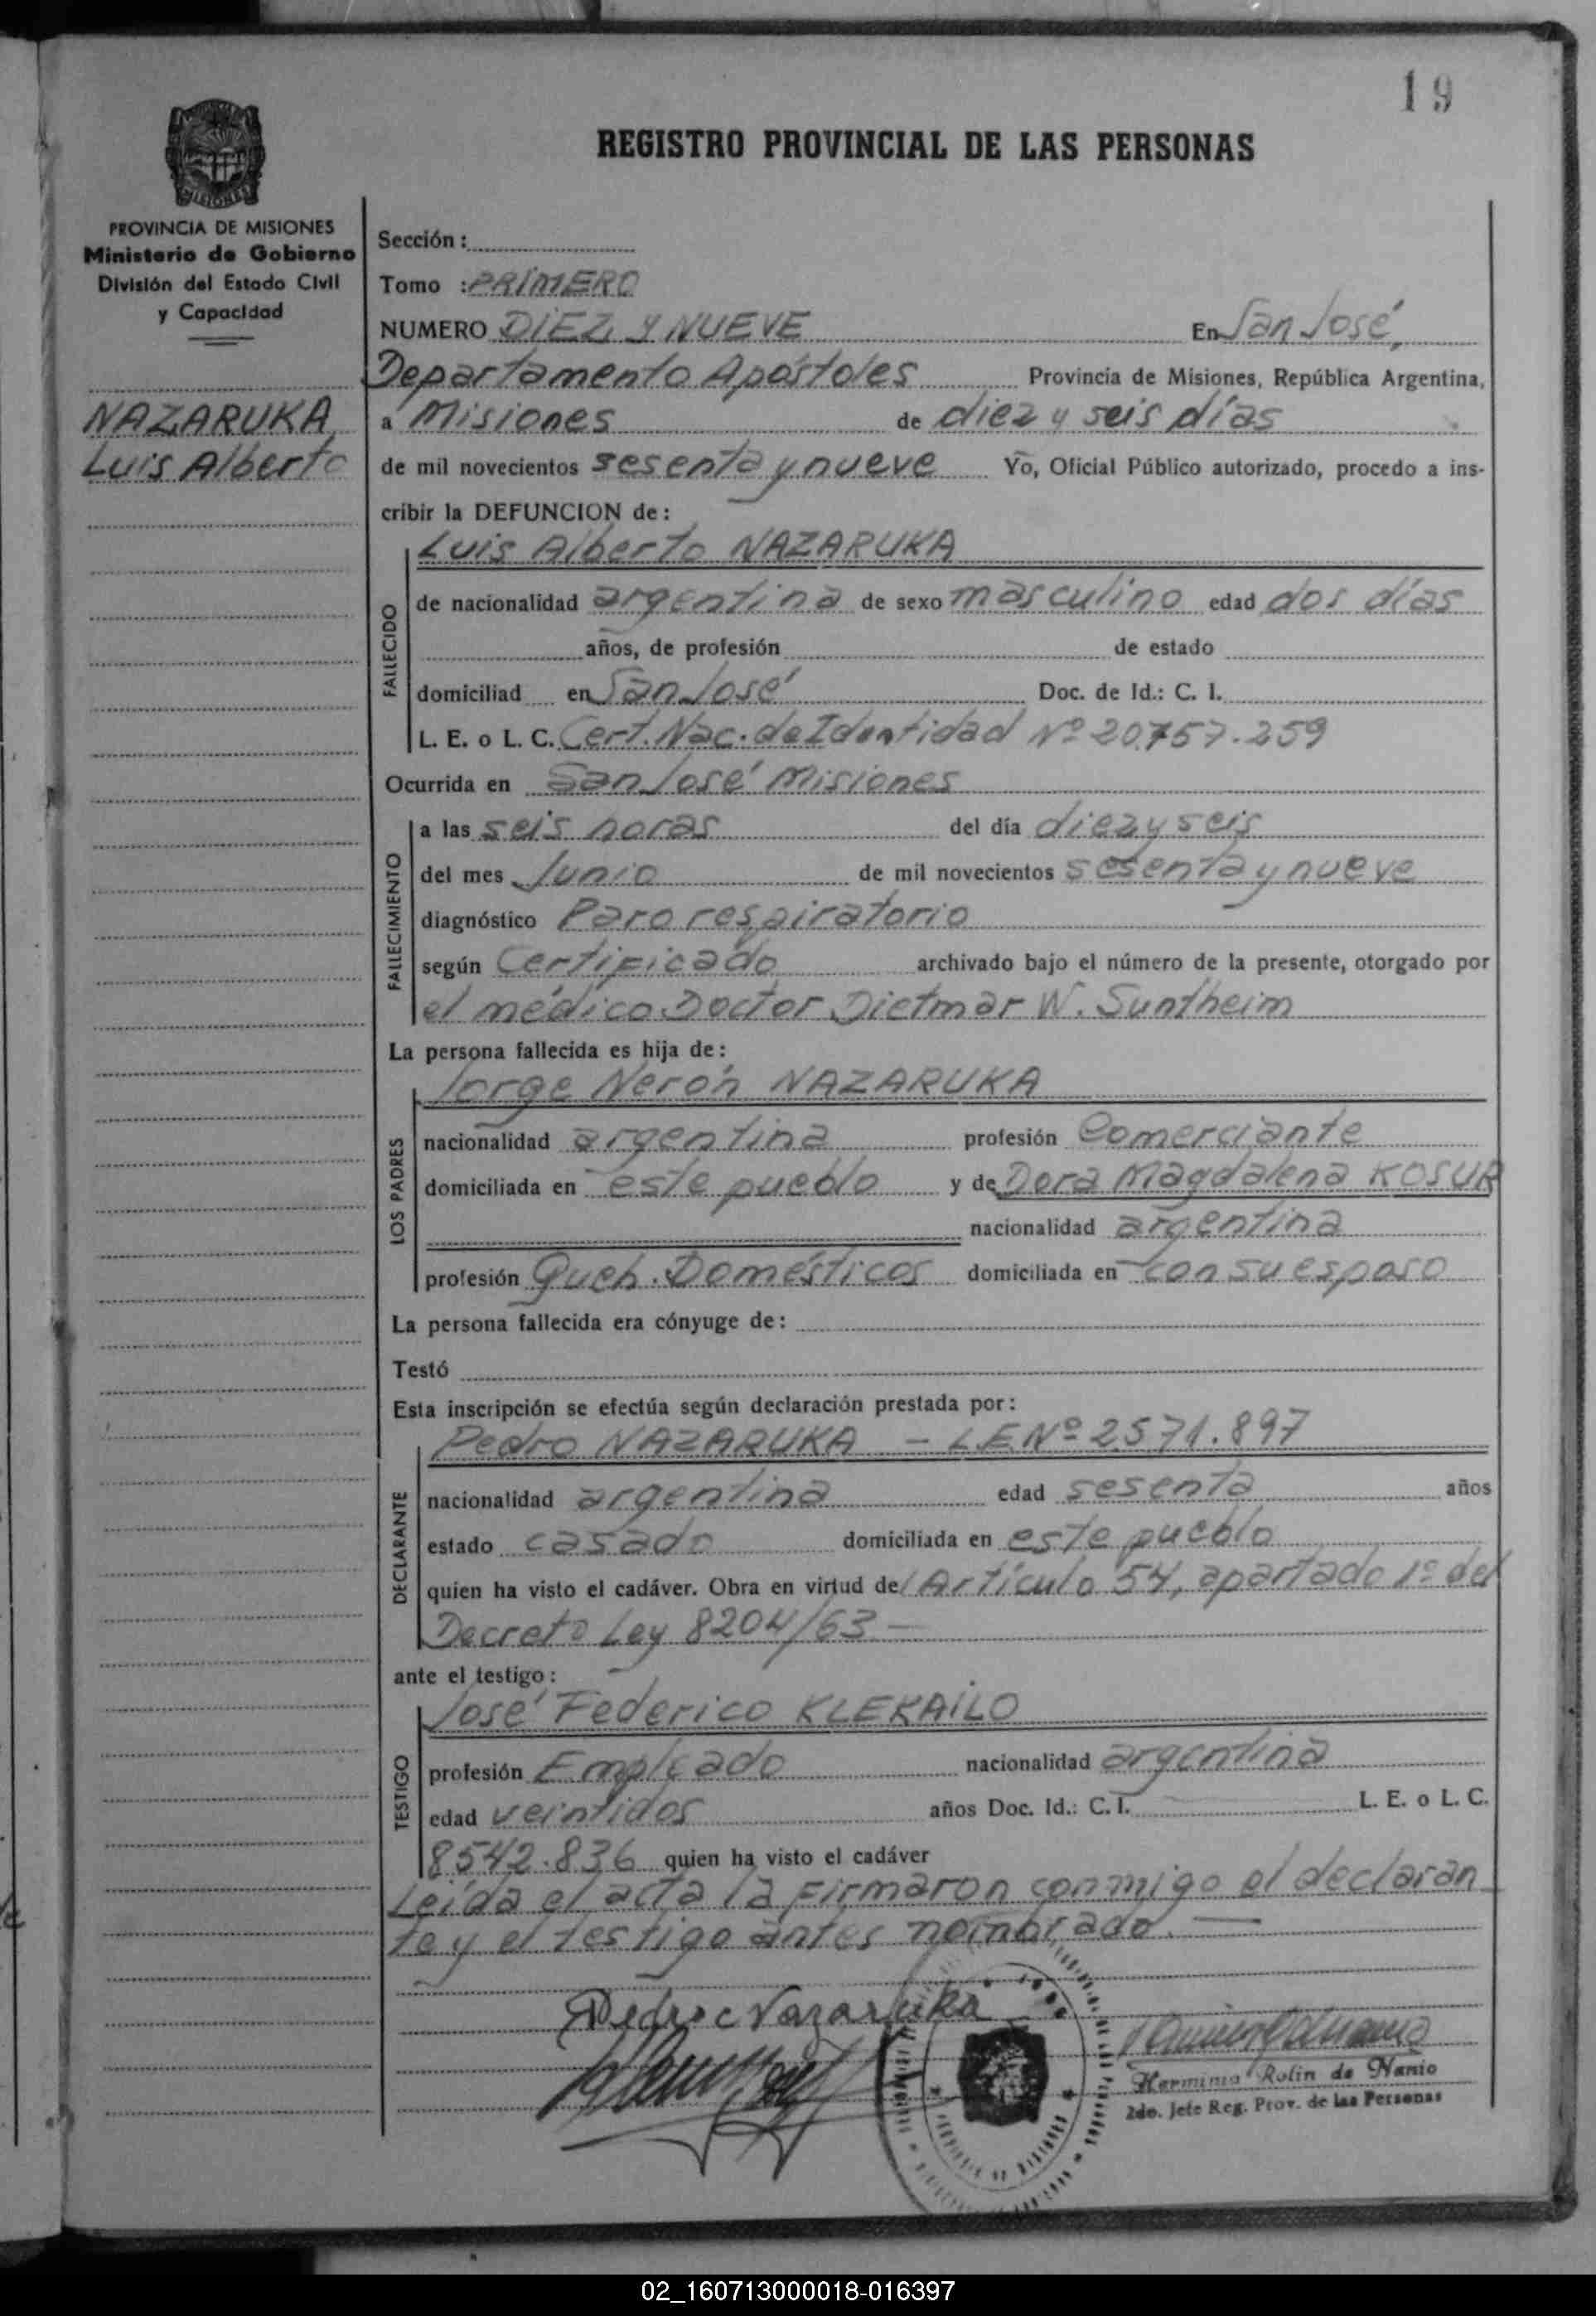 19
REGISTRO PROVINCIAL DE LAS PERSONAS
MISIONES
PROVINCIA DE MISIONES
Ministerio de Gobierno
División del Estado Civil
y Capacidad
NAZARUKA
Luis Alberto
Sección :
Tomo : PRIMERO
NUMERO DIEZ Y NUEVE En San José,
Departamento Apóstoles Provincia de Misiones, República Argentina,
a Misiones de diez y seis días
de mil novecientos sesenta y nueve Yo, Oficial Público autorizado, procedo a ins-
cribir la DEFUNCION de :
Luis Alberto NAZARUKA
FALLECIDO
de nacionalidad argentina de sexo masculino edad dos días
años, de profesión de estado
domiciliad en San José Doc. de Id.: C. I.
L. E. o L. C. Cert. Nac. de Identidad Nº 20.757.259
Ocurrida en San José Misiones
FALLECIMIENTO
a las seis horas del día diez y seis
del mes Junio de mil novecientos sesenta y nueve
diagnóstico Paro respiratorio
según Certificado archivado bajo el número de la presente, otorgado por
el médico Doctor Dietmar W. Suntheim
La persona fallecida es hija de :
LOS PADRES
Jorge Nerón NAZARUKA
nacionalidad argentina profesión Comerciante
domiciliada en este pueblo y de Dora Magdalena KOSUR
nacionalidad argentina
profesión Queh. Domésticos domiciliada en con su esposo
La persona fallecida era cónyuge de :
Testó
Esta inscripción se efectúa según declaración prestada por :
DECLARANTE
Pedro NAZARUKA - L.E. Nº 2.571.897
nacionalidad argentina edad sesenta años
estado casado domiciliada en este pueblo
quien ha visto el cadáver. Obra en virtud del Artículo 54, apartado 1º del
Decreto Ley 8204/63 —
ante el testigo :
TESTIGO
José Federico KLEKAILO
profesión Empleado nacionalidad argentina
edad veintidos años Doc. Id.: C. I. L. E. o L. C.
8542.836 quien ha visto el cadáver
Leída el acta la firmaron conmigo el declaran_
te y el testigo antes nombrado. —
Pedro Nazaruka
Herminia Rolin de Nanio
2do. Jefe Reg. Prov. de las Personas
02_160713000018-016397